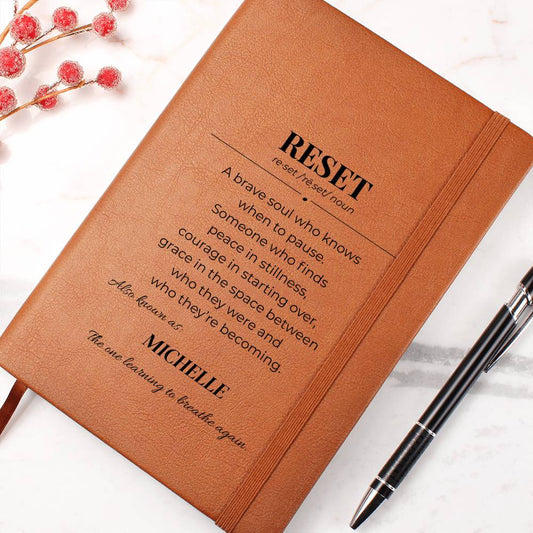 RESET
re·set /rē.set/ noun
A brave soul who knows
when to pause.
Someone who finds
peace in stillness,
courage in starting over,
grace in the space between
who they were and
who they're becoming.
Also known as:
MICHELLE
The one learning to breathe again